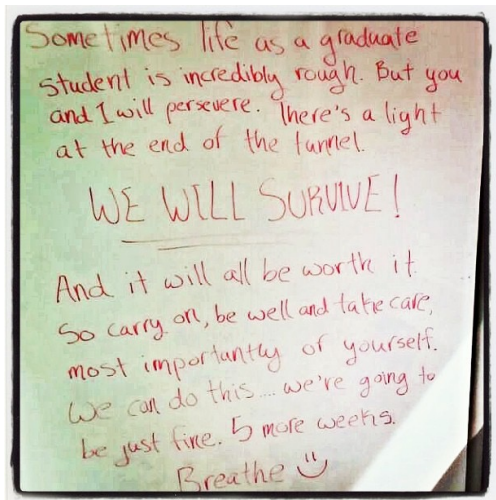 Sometimes life as a graduate
student is incredibly rough. But you
and I will persevere. There's a light
at the end of the tunnel.
WE WILL SURVIVE!
And it will all be worth it.
So carry on, be well and take care,
most importantly of yourself.
We can do this.... we're going to
be just fine. 5 more weeks.
Breathe